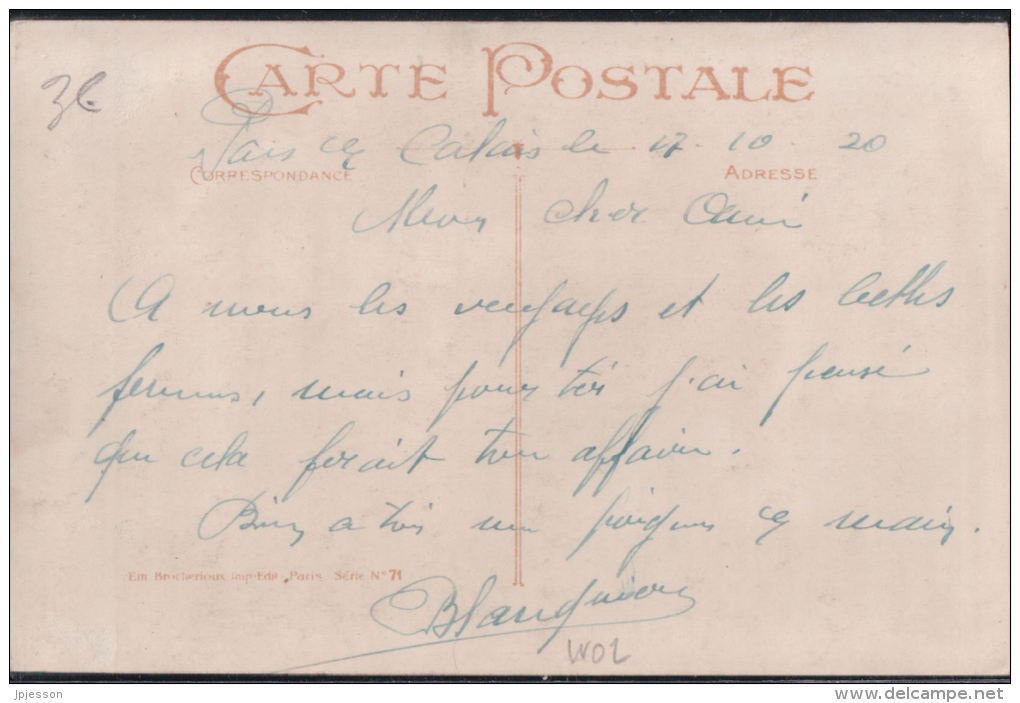 CARTE POSTALE
3€
Pas de Calais le 17-10-20
CORRESPONDANCE
ADRESSE
Mon cher Ami
A nous les voyages et les belles
femmes, mais pour toi j'ai pensé
que cela ferait ton affaire.
Bien à toi une poignée de main.
Em Brocherioux Imp-Edit-Paris Série N° 71
W02
jpjesson
www.delcampe.net